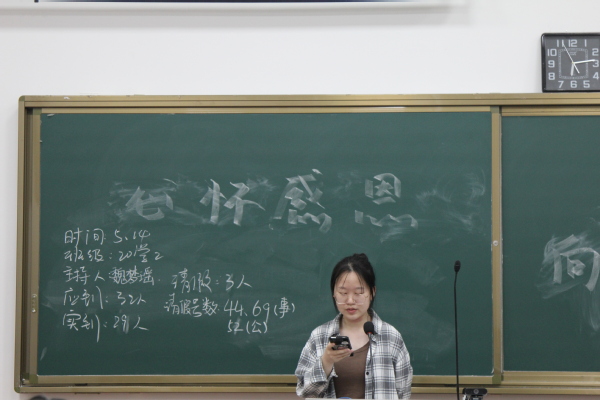 心怀感恩
向
时间：5.14
班级：20学2
主持人：魏梦遥
应到：32人
实到：29人
请假：3人
请假号数：44、69(事)
(公)
11 12 1
10 2
9 3
8 4
7 6 5